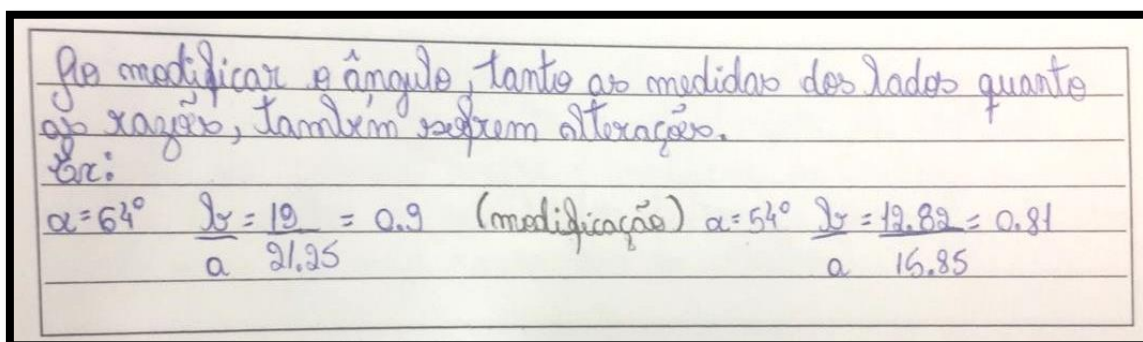 Ao modificar o ângulo, tanto as medidas dos lados quanto
as razões, também sofrem alterações.
Ex:
α=64° b/a = 19/21.25 = 0.9 (modificação) α=54° b/a = 12.82/15.85 = 0.81